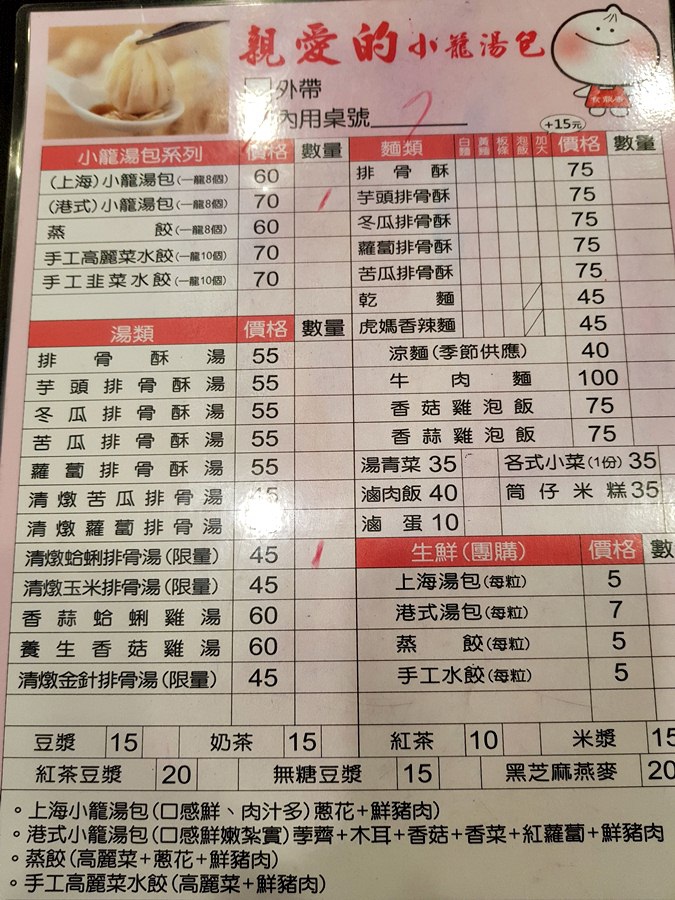 親愛的小籠湯包
食鼎客
外帶
內用桌號 2
小籠湯包系列 價格 數量
(上海)小籠湯包(一籠8個) 60
(港式)小籠湯包(一籠8個) 70 /
蒸餃(一籠8個) 60
手工高麗菜水餃(一籠10個) 70
手工韭菜水餃(一籠10個) 70
湯類 價格 數量
排骨酥湯 55
芋頭排骨酥湯 55
冬瓜排骨酥湯 55
苦瓜排骨酥湯 55
蘿蔔排骨酥湯 55
清燉苦瓜排骨湯
清燉蘿蔔排骨湯
清燉蛤蜊排骨湯(限量) 45 /
清燉玉米排骨湯(限量) 45
香蒜蛤蜊雞湯 60
養生香菇雞湯 60
清燉金針排骨湯(限量) 45
+15元
麵類 白麵 黃麵 板條 泡飯 加大 價格 數量
排骨酥 75
芋頭排骨酥 75
冬瓜排骨酥 75
蘿蔔排骨酥 75
苦瓜排骨酥 75
乾麵 45
虎媽香辣麵 45
涼麵(季節供應) 40
牛肉麵 100
香菇雞泡飯 75
香蒜雞泡飯 75
湯青菜 35 各式小菜(1份) 35
滷肉飯 40 筒仔米糕 35
滷蛋 10
生鮮(團購) 價格 數
上海湯包(每粒) 5
港式湯包(每粒) 7
蒸餃(每粒) 5
手工水餃(每粒) 5
豆漿 15 奶茶 15 紅茶 10 米漿 15
紅茶豆漿 20 無糖豆漿 15 黑芝麻燕麥 20
。上海小籠湯包(口感鮮、肉汁多)蔥花+鮮豬肉)
。港式小籠湯包(口感鮮嫩紮實)荸薺+木耳+香菇+香菜+紅蘿蔔+鮮豬肉
。蒸餃(高麗菜+蔥花+鮮豬肉)
。手工高麗菜水餃(高麗菜+鮮豬肉)